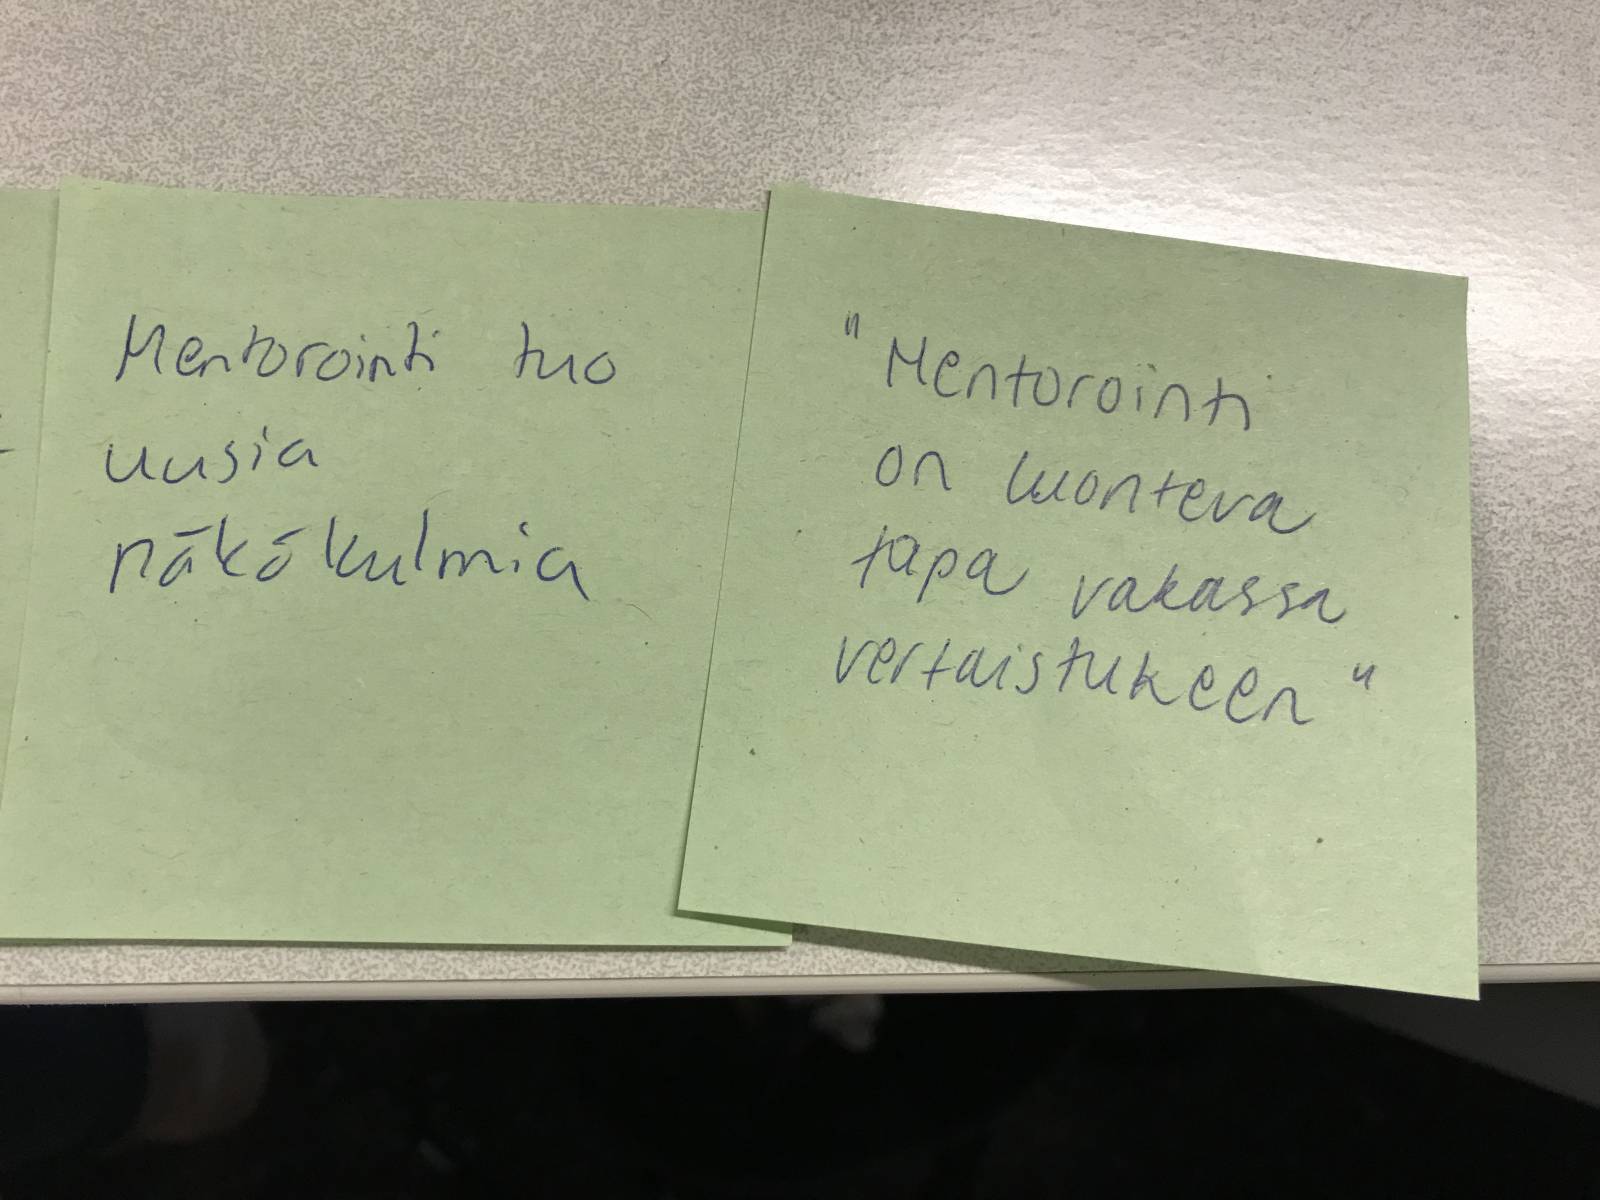 Mentorointi tuo
uusia
näkökulmia
"Mentorointi
on luonteva
tapa vakassa
vertaistukeen"